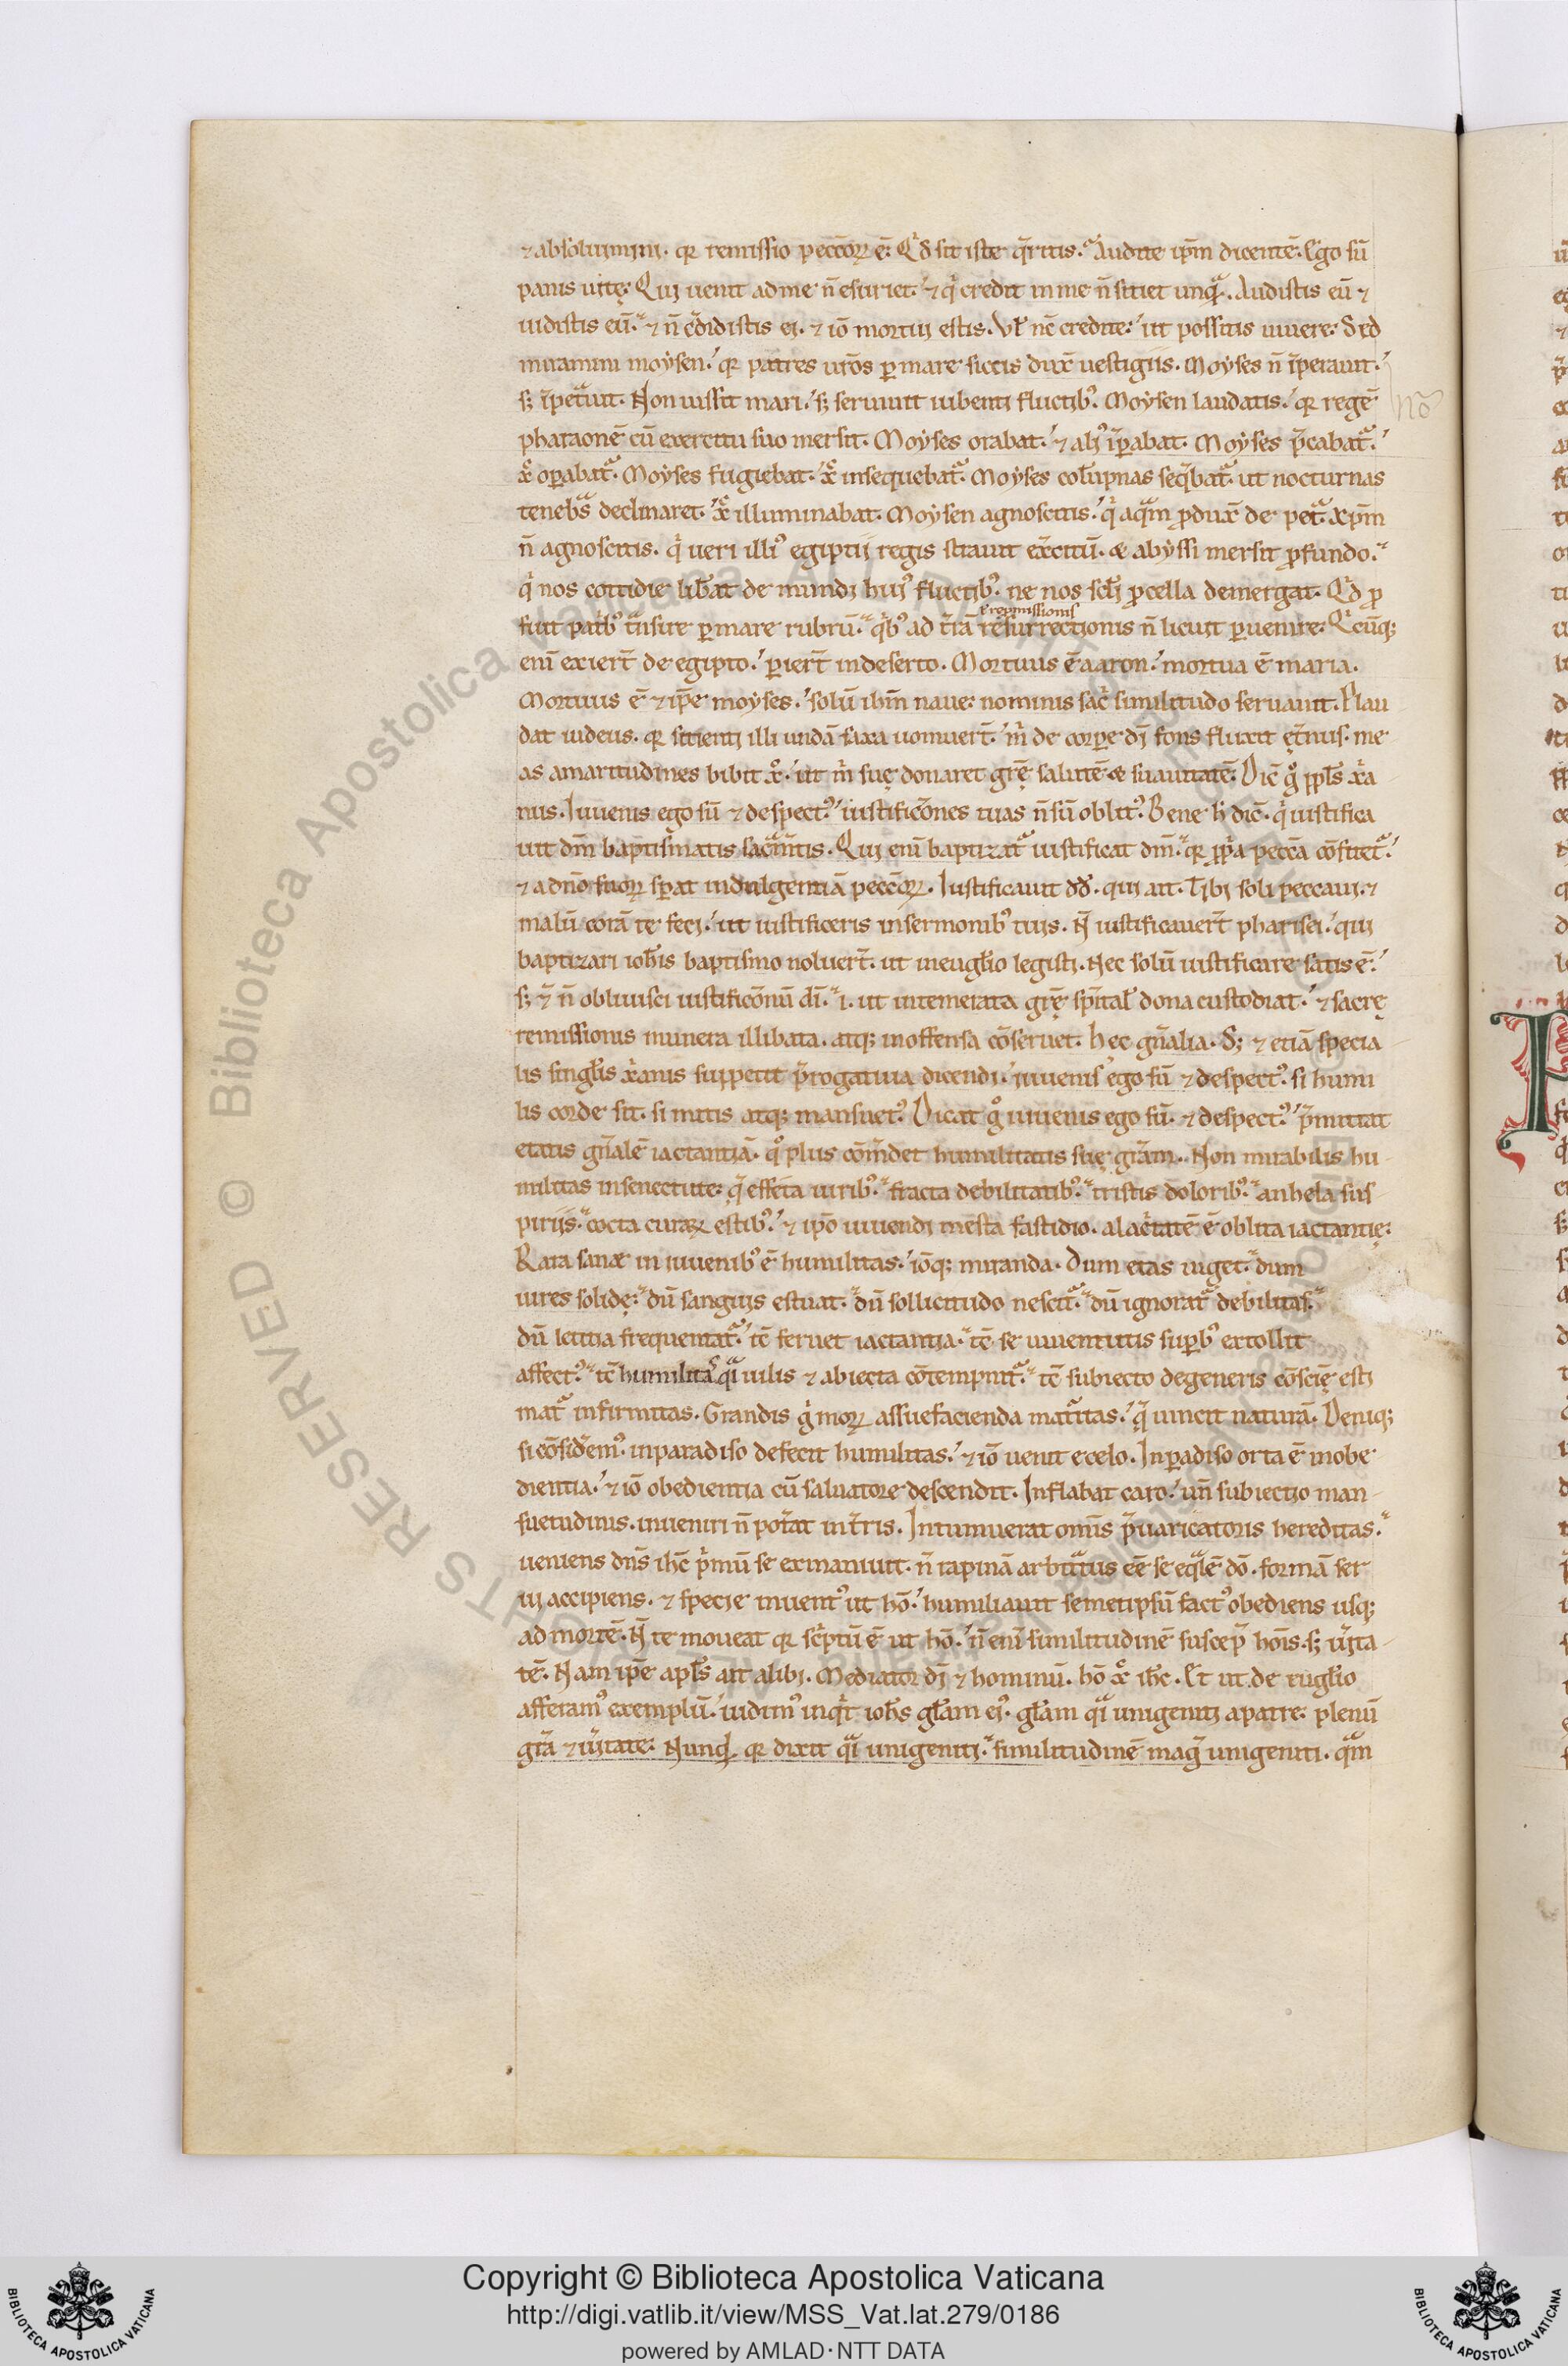 ⁊ absoluimini. qꝛ remissio peccōꝝ ē. Qͥd sit iste q̄ritis. Audite ip̄m dicentē. Ego sū
panis uitę. Qui uenit ad me n̄ esuriet. ⁊ qͥ credit in me n̄ sitiet unqͣ. Audistis eū ⁊
uidistis eū. ⁊ n̄ c̄didistis ei. ⁊ iō mortui estis. Vl̄ nc̄ credite. ut possitis uiuere. Sed
miramini moysen. qꝛ patres ur̄os ꝑ mare siccis dux̄ uestigiis. Moyses n̄ īperauit.
sꝫ īpetͣuit. Non iussit mari. sꝫ seruiuit iubenti fluctibꝰ. Moysen laudatis. qꝛ regē
pharaonē cū exercitu suo mersit. Moyses orabat. ⁊ aliꝰ īꝑabat. Moyses p̄cabatᷣ.
xp̄c oꝑabatᷣ. Moyses fugiebat. xp̄c insequebatᷣ. Moyses colūpnas seq̄batᷣ. ut nocturnas
tenebͣs declinaret. xp̄c illuminabat. Moysen agnoscitis. qͥ aqͣm ꝓdux̄ de petͣ. xp̄m
n̄ agnoscitis. qͥ ueri illiꝰ egiptii regis strauit ex̄citū. & abyssi mersit ꝓfundo.
qͥ nos cottidie lib̄at de mundi huiꝰ fluctibꝰ. ne nos scl̄i ꝓcella demergat. Qͥd ꝓ
fuit patͥbꝰ tͣnsire ꝑ mare rubrū. qͥbꝰ ad t̄rā resurrectionis n̄ licuit ꝑuenire. Qͥcūqꝫ
ł repmissionis
eni exiert̄ de egipto. ꝑiert̄ in deserto. Mortuus ē aaron. mortua ē maria.
Mortuus ē ⁊ ip̄e moyses. solū ihm̄ naue. nominis sacͥ similitudo seruauit. Plau
dat iudeus. qꝛ sitienti illi undā saxa uomuert̄. m̄ de corꝑe dī fons fluxit ęt̄nus. me
as amaritudines bibit xp̄c. ut m̄ suę donaret gr̄ę salutē & suauitatē. Dic̄ gͦ ppl̄s xͥa
nus. Iuuenis ego sū ⁊ despectꝰ iustificōnes tuas n̄ sū oblitꝰ. Bene h̄ dic̄. qͥ iustifica
uit dm̄ baptismatis sacͣm̄tis. Qui eni baptizatᷣ iustificat dm̄. qꝛ ꝓpͥa pecc̄a cōfitetᷣ.
⁊ a dn̄o suoꝝ sꝑat indulgentiā peccōꝝ. Iustificauit dd̄. qui ait. Tibi soli peccaui. ⁊
malū corā te feci. ut iustificeris in sermonibꝰ tuis. N̄ iustificauert̄ pharisei. qui
baptizari ioh̄is baptismo noluert̄. ut in eugl̄io legisti. Nec solū iustificare satis ē.
sꝫ ⁊ n̄ obliuisci iustificōnū dī. i. ut intemerata gr̄ę sp̄ital̄ dona custodiat. ⁊ sacrę
remissionis munera illibata. atqꝫ inoffensa cōseruet. Hec gn̄alia. Sꝫ ⁊ etiā specia
lis singl̄is xͥanis suppetit p̄rogatiua dicendi. iuuenis ego sū ⁊ despectꝰ. si humi
lis corde sit. si mitis atqꝫ mansuetꝰ. Dicat gͦ iuuenis ego sū. ⁊ despectꝰ. p̄mittat
etatis gn̄alē iactantiā. qͦ plus cōm̄det humilitatis suę gr̄am. Non mirabilis hu
militas in senectute. q̄ effeta uiribꝰ. fracta debilitatibꝰ. tristis doloribꝰ. anhela sus
piriis. cocta curaꝝ estibꝰ. ⁊ ip̄o uiuendi mesta fastidio. alacͥtatē ē oblita iactantię.
Rara sanæ in iuuenibꝰ ē humilitas. iōqꝫ miranda. Dum etas uiget. dum
uires solidę. dū sanguis estuat. dū sollicitudo nescitᷣ. dū ignoratᷣ debilitas.
dū letitia frequentatᷣ. tc̄ feruet iactantia. tc̄ se iuuentutis suꝑbꝰ extollit
affectꝰ. tc̄ humilitas qͣi uilis ⁊ abiecta cōtempnitᷣ. tc̄ subiecto degeneris cōscię esti
matᷣ infirmitas. Grandis gͥ moꝝ assuefacienda maturitas. q̄ uincit naturā. Deniqꝫ
si cōsid̄emꝰ. in paradiso defecit humilitas. ⁊ iō uenit e celo. In paradiso orta ē inobe
dientia. ⁊ iō obedientia cū saluatore descendit. Inflabat caro. un̄ subiectio man
suetudinis. inueniri n̄ pot̄at in t̄ris. Intumuerat omīs p̄uaricatoris hereditas.
ueniens dn̄s ihc̄ pͥmū se exinaniuit. n̄ rapinā arbitͣtus eē se eqͣlē dō. formā ser
ui accipiens. ⁊ specie inuentꝰ ut hō. humiliauit semetipsū factꝰ obediens usqꝫ
ad mortē. N̄ te moueat qꝛ scͥptū ē ut hō. n̄ eni similitudinē suscep̄ hoīs. sꝫ u̅ita
tē. Nam ip̄e apl̄s ait alibi. Mediator dī ⁊ hominū. hō xp̄c ihc̄. Et ut de eugl̄io
afferamꝰ exemplū. uidimꝰ inqͥt ioh̄s gl̄am eiꝰ. gl̄am qͣi unigeniti a patre. plenū
gr̄a ⁊ u̅itate. Nunqͥd qꝛ dixit qͣi unigeniti. similitudinē magͥ unigeniti. qͣm
nō
Copyright © Biblioteca Apostolica Vaticana
http://digi.vatlib.it/view/MSS_Vat.lat.279/0186
powered by AMLAD·NTT DATA